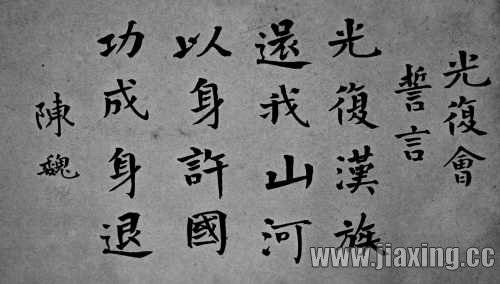 光復會
誓言
光復漢族
還我山河
以身許國
功成身退
陳魏
www.jiaxing.cc